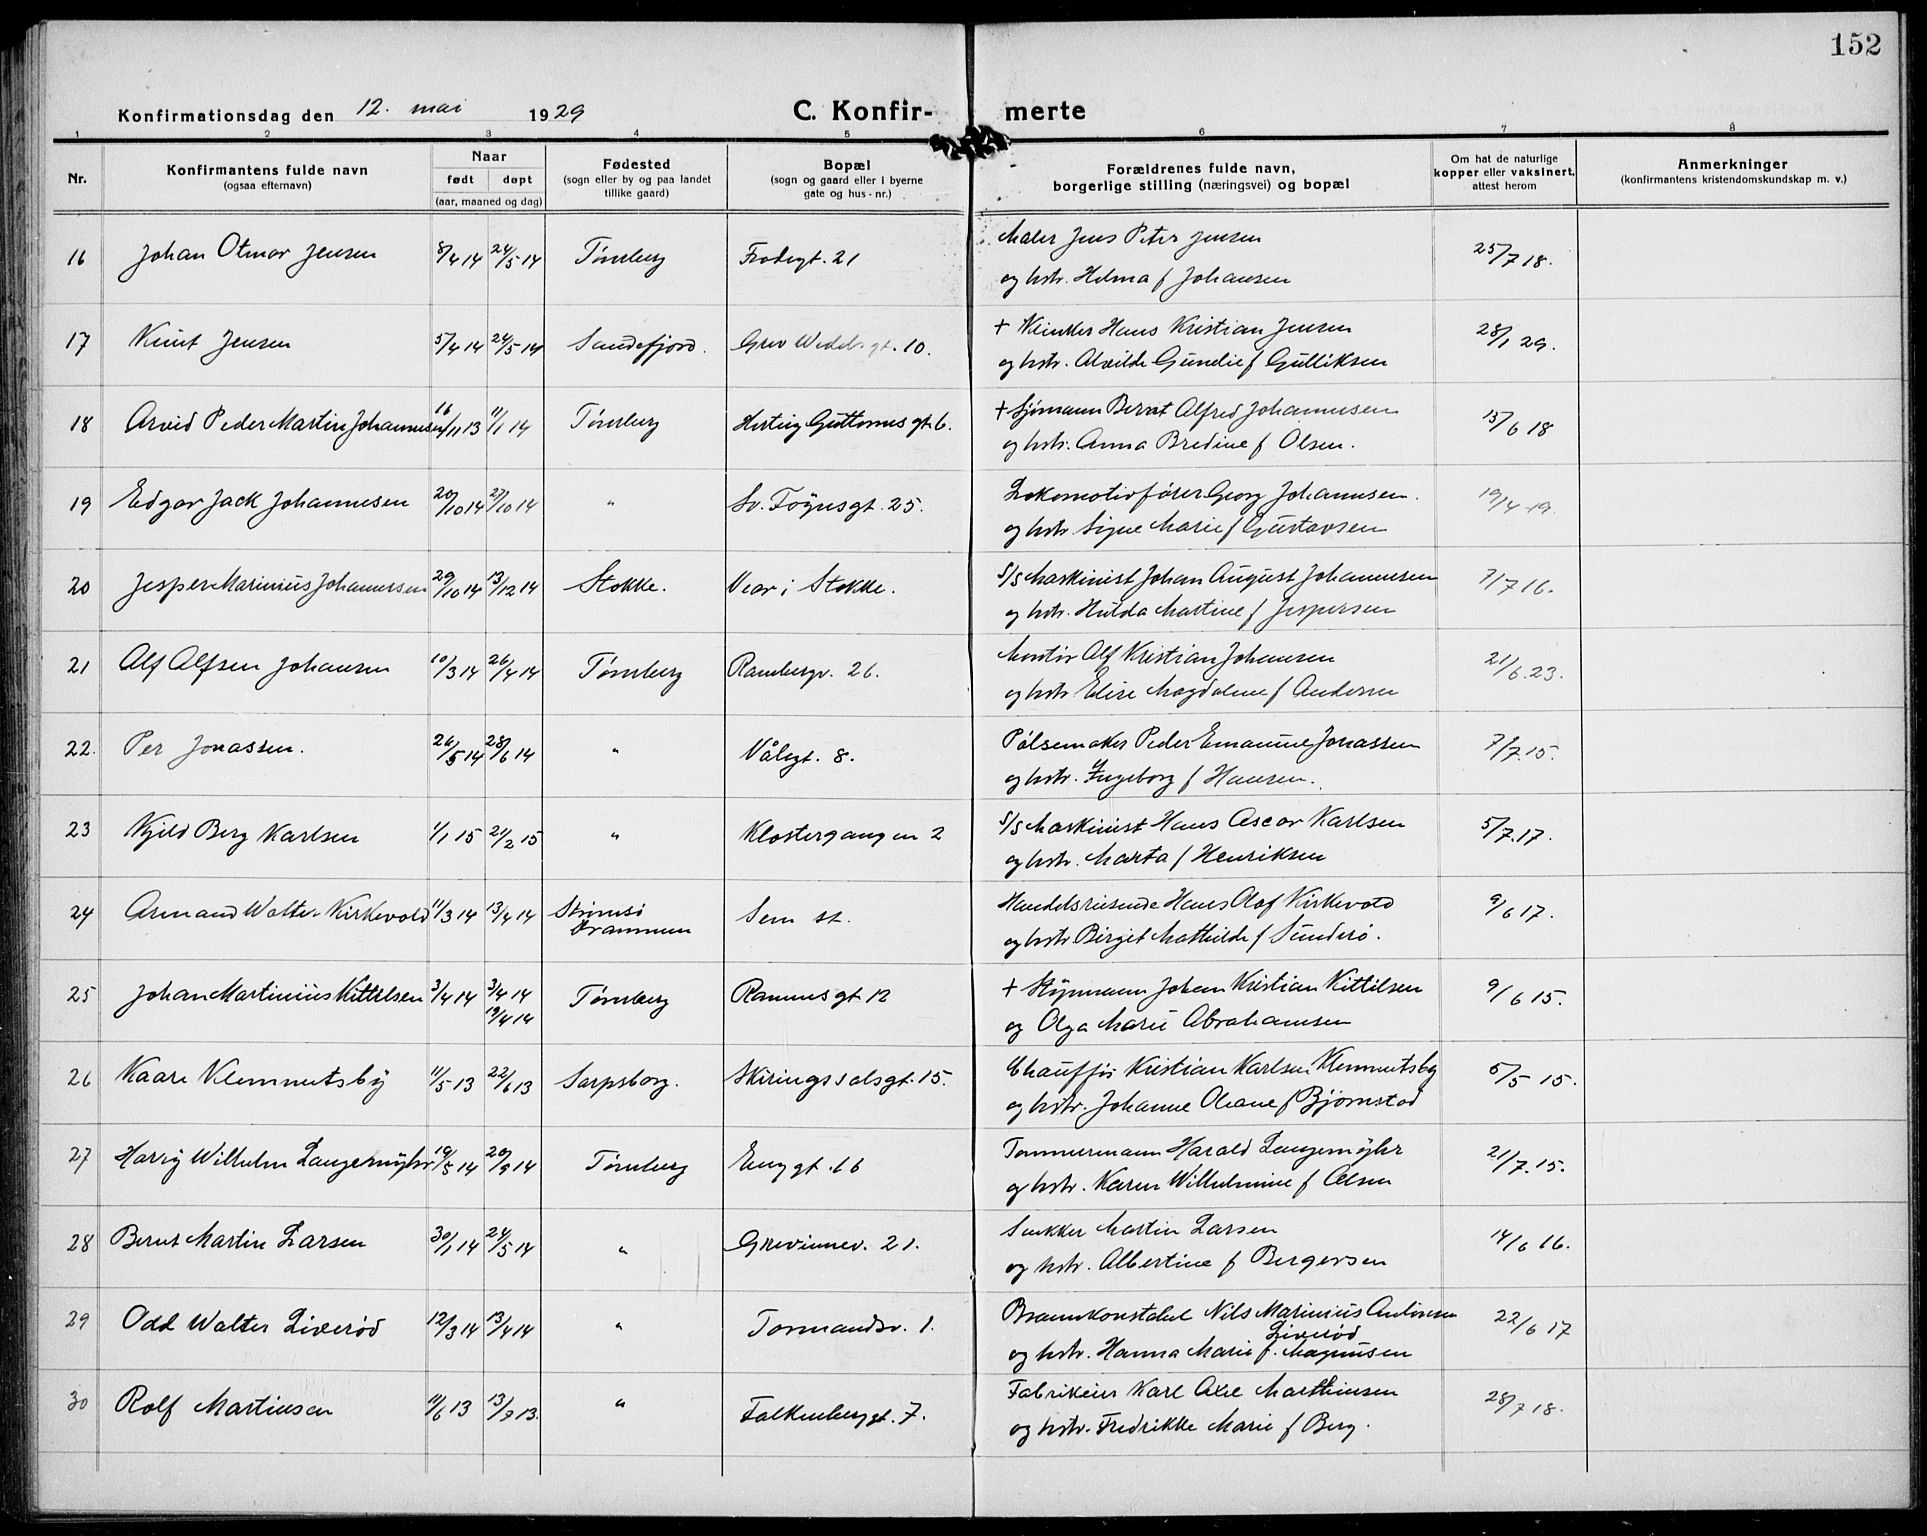 152
Konfirmationsdag den 12. mai 1929
C. Konfir- merte
1 2 3 4 5 6 7 8
Nr.
Konfirmantens fulde navn
(ogsaa efternavn)
Naar
født døpt
(aar, maaned og dag)
Fødested
(sogn eller by og paa landet
tillike gaard)
Bopæl
(sogn og gaard eller i byerne
gate og hus-nr.)
Forældrenes fulde navn,
borgerlige stilling (næringsvei) og bopæl
Om hat de naturlige
kopper eller vaksinert,
attest herom
Anmerkninger
(konfirmantens kristendomskundskap m. v.)
16 Johan Otmar Jensen 8/4 14 24/5 14 Tønsberg Frodegt. 21 Maler Jens Peter Jensen 25/7 18.
og hstr. Helma f Johansen
17 Knut Jensen 5/4 14 24/5 14 Sandefjord. Grev Wedelsgt. 10. + Klinker Hans Kristian Jensen 28/1 29.
og hstr. Alvilde Gundie f Gulliksen
18 Arvid Peder Martin Johannesen 16/11 13 11/1 14 Tønsberg Hertug Guttorms gt. 6. + Sjømann Bernt Alfred Johannesen 13/6 18
og hstr. Anna Bredine f Olsen.
19 Edgar Jack Johannesen 20/10 14 27/10 14 " Sv. Føynsgt. 25. Lokomotivfører Georg Johannesen. 19/4 19.
og hstr. Signe Marie f Gustavsen
20 Jesper Marinius Johannessen 29/10 14 13/12 14 Stokke. Vear i Stokke. S/S Maskinist Johan August Johannesen 7/7 16.
og hstr. Hulda Martine f Jespersen
21 Alf Alfsen Johansen 10/3 14 26/4 14 Tønsberg Rambergv. 26. Montør Alf Kristian Johansen 21/6. 23.
og hstr Elise Magdalene f Andersen
22. Per Jonassen. 26/5 14 28/6 14 " Vålegt. 8. Pølsemaker Peder Emanuel Jonassen 7/7. 15.
og hstr. Ingeborg f Hansen.
23 Kjeld Berg Karlsen 1/1 15 21/2 15 " Klostergangen 2 S/S Maskinist Hans Oscar Karlsen 5/7. 17.
og hstr. Marta f Henriksen
24 Armand Walter Kirkevold 11/3 14 13/4 14 Strømsø Sem st. Handelsreisende Hans Olof Kirkevold 9/6 17.
Drammen og hstr Birget Mathilde f Sunderø.
25 Johan Martinius Kittilsen 3/4 14 3/4 14 Tønsberg Ramnesgt 12 + Styrmann Johan Kristian Kittilsen 9/6 15.
19/4 14 og Olga Marie Abrahamsen
26 Kaare Klemmetsby 11/5 13 22/6 13 Sarpsborg. Skiringssalsgt. 15. Chauffør Kristian Karlsen Klemmetsby 5/5 15.
og hstr. Johanne Oleane f Bjørnstad
27 Harry Wilhelm Langemyhr 19/5 14 20/9 14 Tønsberg Enggt. 66 Tømmermann Harald Langemyhr 21/7. 15.
og hstr. Karen Wilhelmine f Olsen
28 Bernt Martin Larsen 30/1 14 24/5 14 " Grevinnev. 21. Snekker Martin Larsen 14/6 16.
og hstr. Albertine f Bergersen
29 Odd Walter Liverød 12/3 14 13/4 14 " Tormandsv. 1. Brannkonstabel Nils Marinius Antonsen 22/6 17
Liverød
og hstr. Hanna Marie f. Magnusen
30 Rolf Martinsen 11/6 13 13/7 13. " Falkenberggt. 7. Fabrikeier Karl Axel Marthinsen 28/7 18.
og hstr. Fredrikke Marie f Berg.